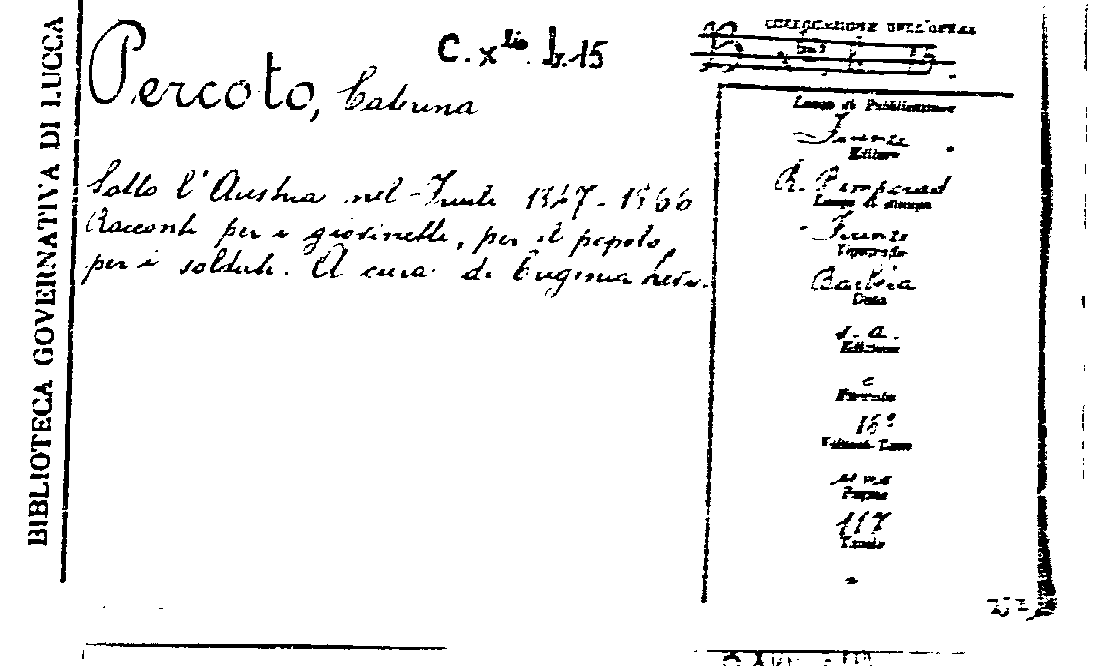 BIBLIOTECA GOVERNATIVA DI LUCCA
C. x
Percoto, Caterina
Sotto l'Austria nel Friuli 1847-1866
Racconti per i giovinetti, per il popolo,
per i soldati. A cura di Eugenia Levi.
COLLOCAZIONE DELL'OPERA
Luogo di Pubblicazione
Firenze
Editore
R. Bemporad
Luogo di stampa
Firenze
Tipografo
Barbèra
Data
s. a.
Edizione
Formato
16°
Volumi
uno
Pagine
117
Tavole